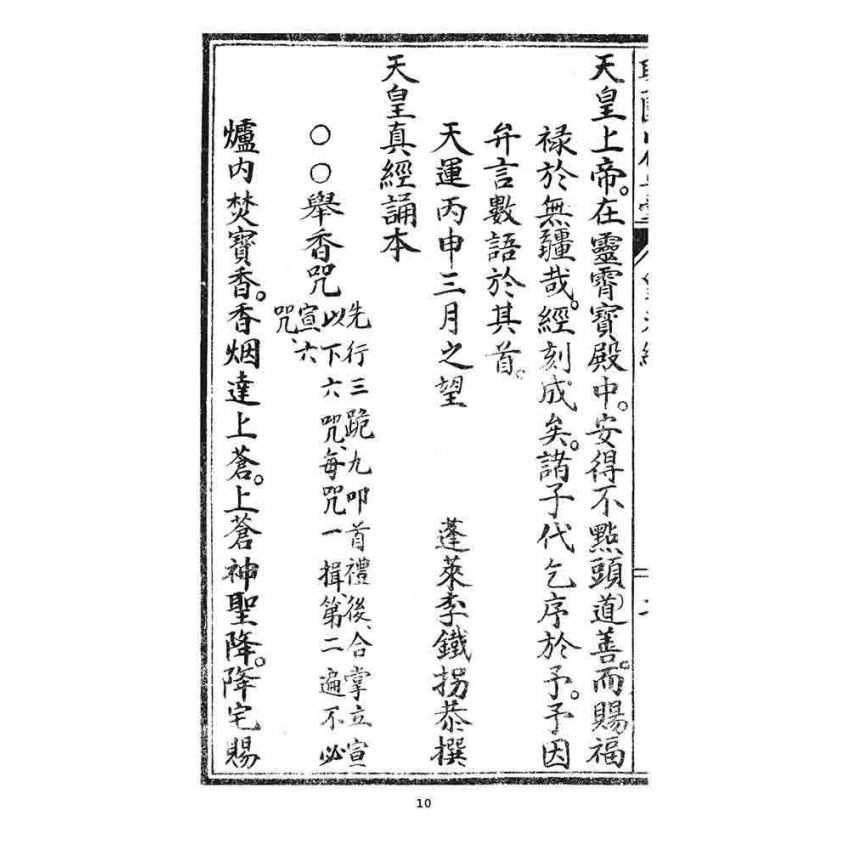 天皇上帝。在靈霄寶殿中。安得不點頭道善。而賜福
祿於無疆哉。經刻成矣。諸子代乞序於予。予因
弁言數語於其首。
天運丙申三月之望　蓬萊李鐵拐恭撰
天皇真經誦本
○○舉香咒
先行三跪九叩首禮後、合掌立宣
以下六咒、每咒一揖、第二遍不必
宣六
咒、
爐內焚寶香。香烟達上蒼。上蒼神聖降。降宅賜
10